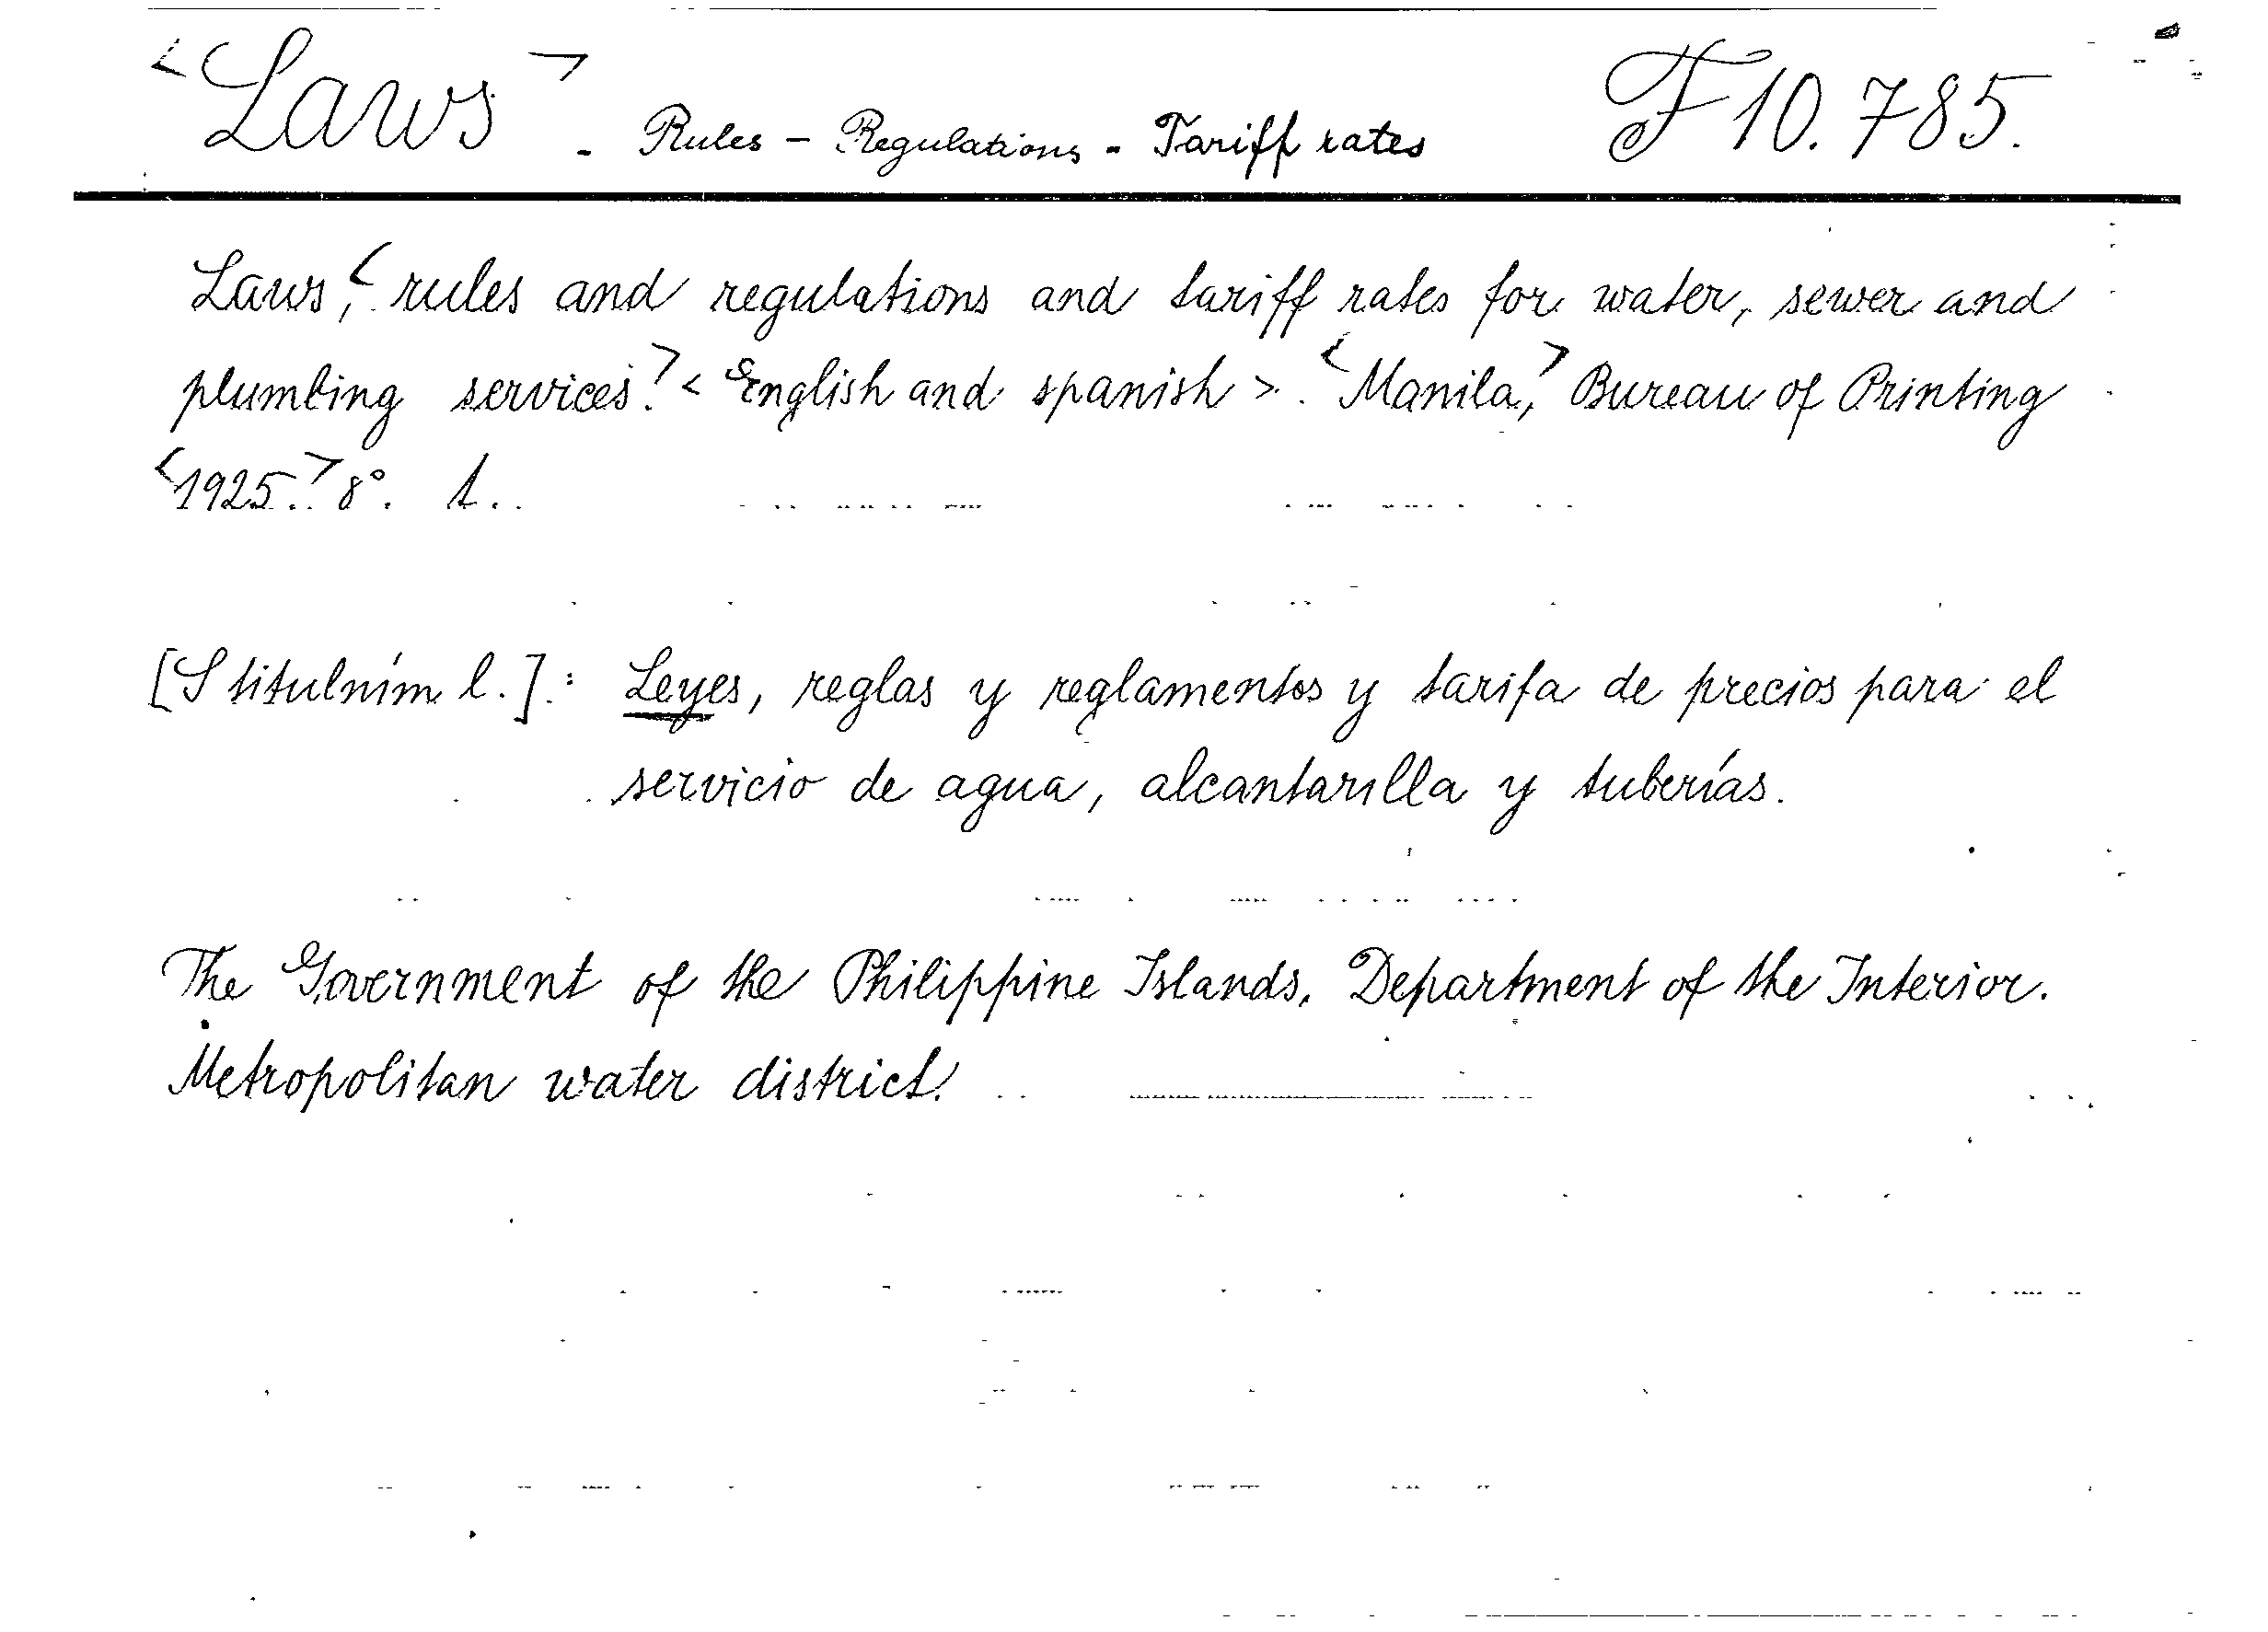 <Laws> - Rules - Regulations - Tariff rates F 10.785.
Laws, <rules and regulations and tariff rates for water, sewer and
plumbing services.> <English and spanish>. <Manila,> Bureau of Printing
<1925.> 8°. 1..
[S titulním l.]: Leyes, reglas y reglamentos y tarifa de precios para el
servicio de agua, alcantarilla y tuberías.
The Government of the Philippine Islands. Department of the Interior.
Metropolitan water district.